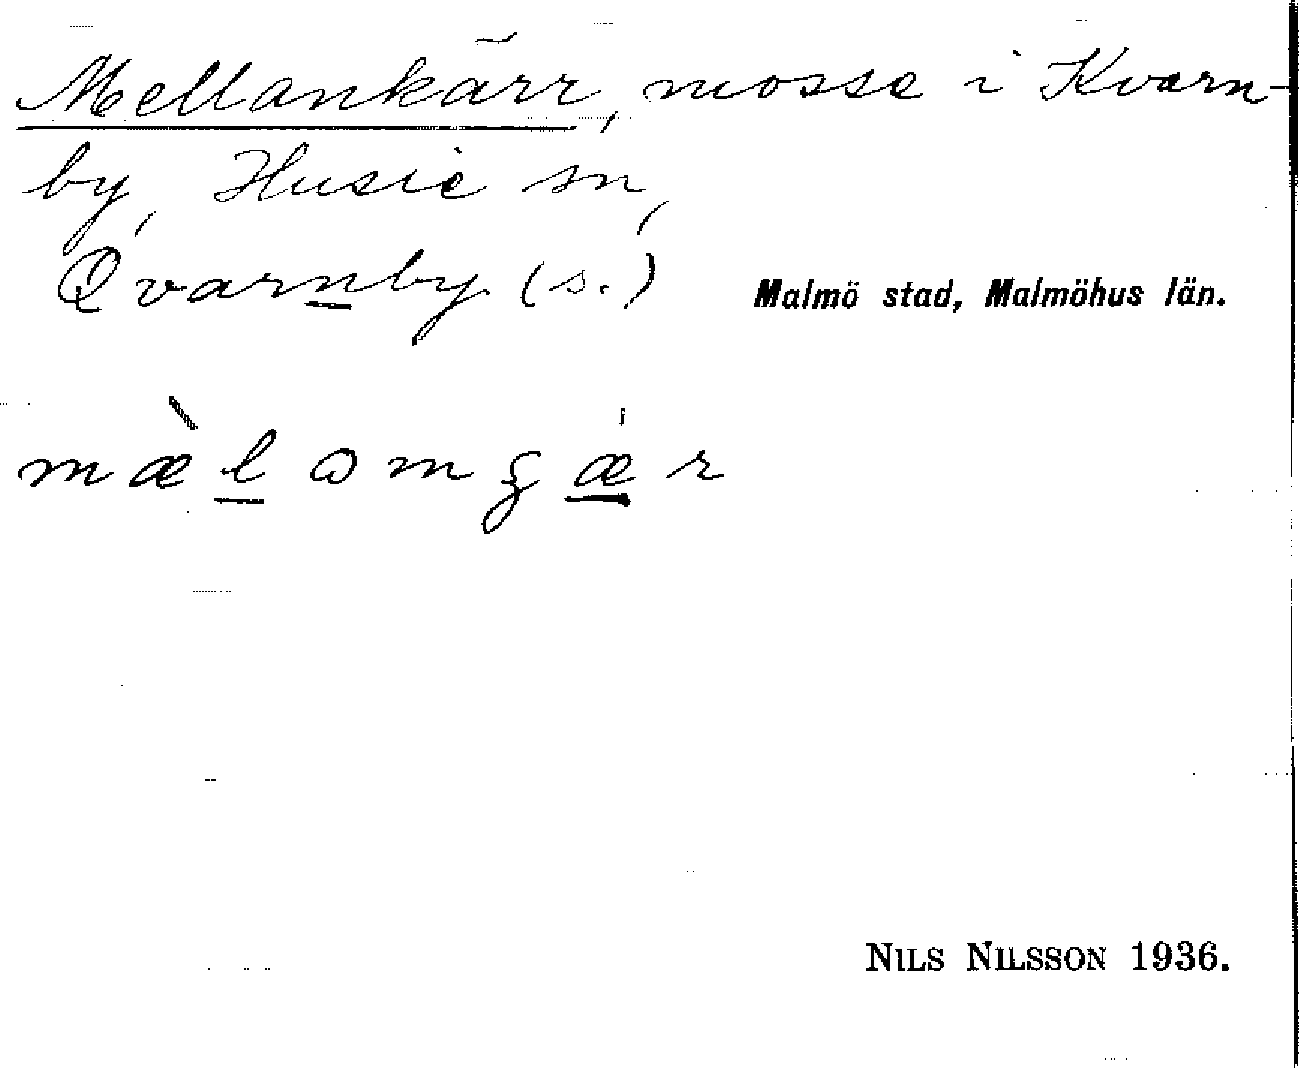 Mellankärr, mosse i Kvarn-
by, Husie sn,
Qvarnby (s.) Malmö stad, Malmöhus län.
mæ̀lomgær
NILS NILSSON 1936.